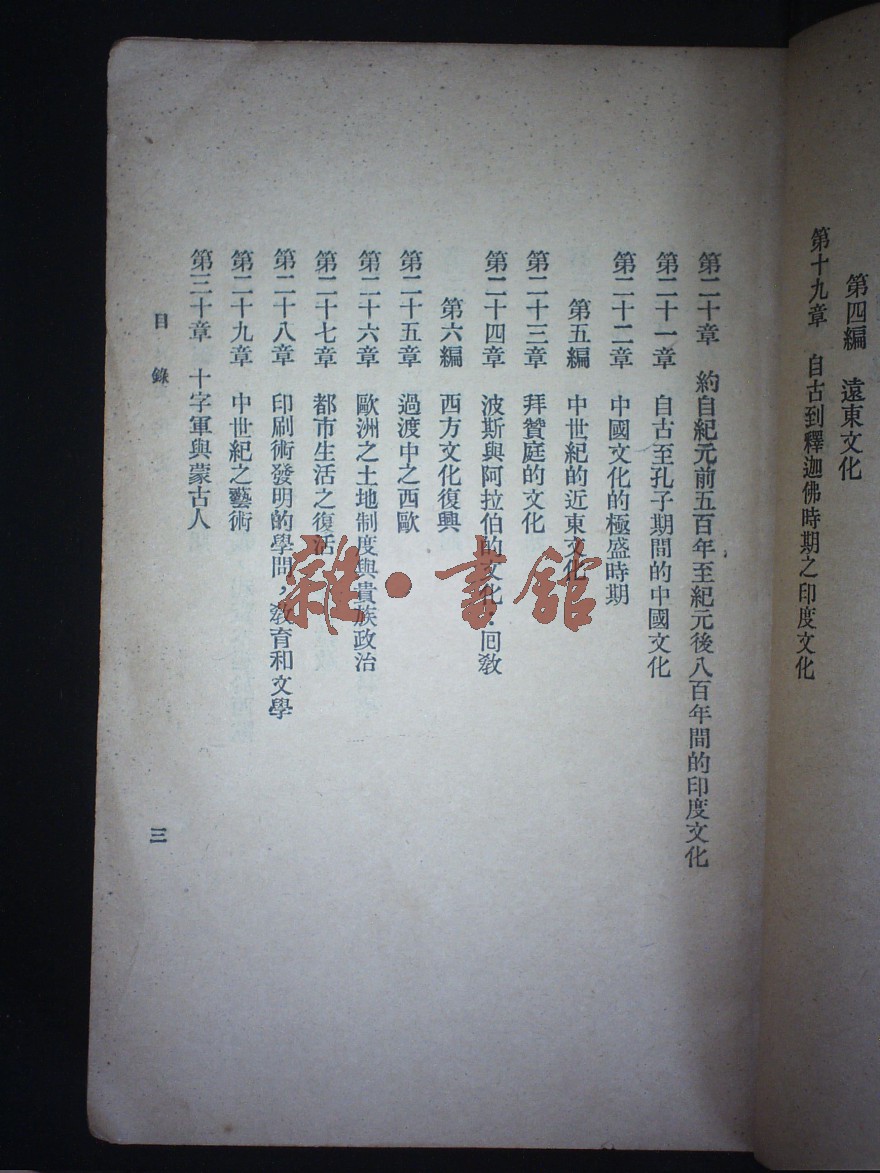 第四編　遠東文化
第十九章　自古到釋迦佛時期之印度文化
第二十章　約自紀元前五百年至紀元後八百年間的印度文化
第二十一章　自古至孔子期間的中國文化
第二十二章　中國文化的極盛時期
第五編　中世紀的近東文化
第二十三章　拜贊庭的文化
第二十四章　波斯與阿拉伯的文化：回敎
第六編　西方文化復興
第二十五章　過渡中之西歐
第二十六章　歐洲之土地制度與貴族政治
第二十七章　都市生活之復活
第二十八章　印刷術發明的學問，敎育和文學
第二十九章　中世紀之藝術
第三十章　十字軍與蒙古人
目　錄
三
雜·書館